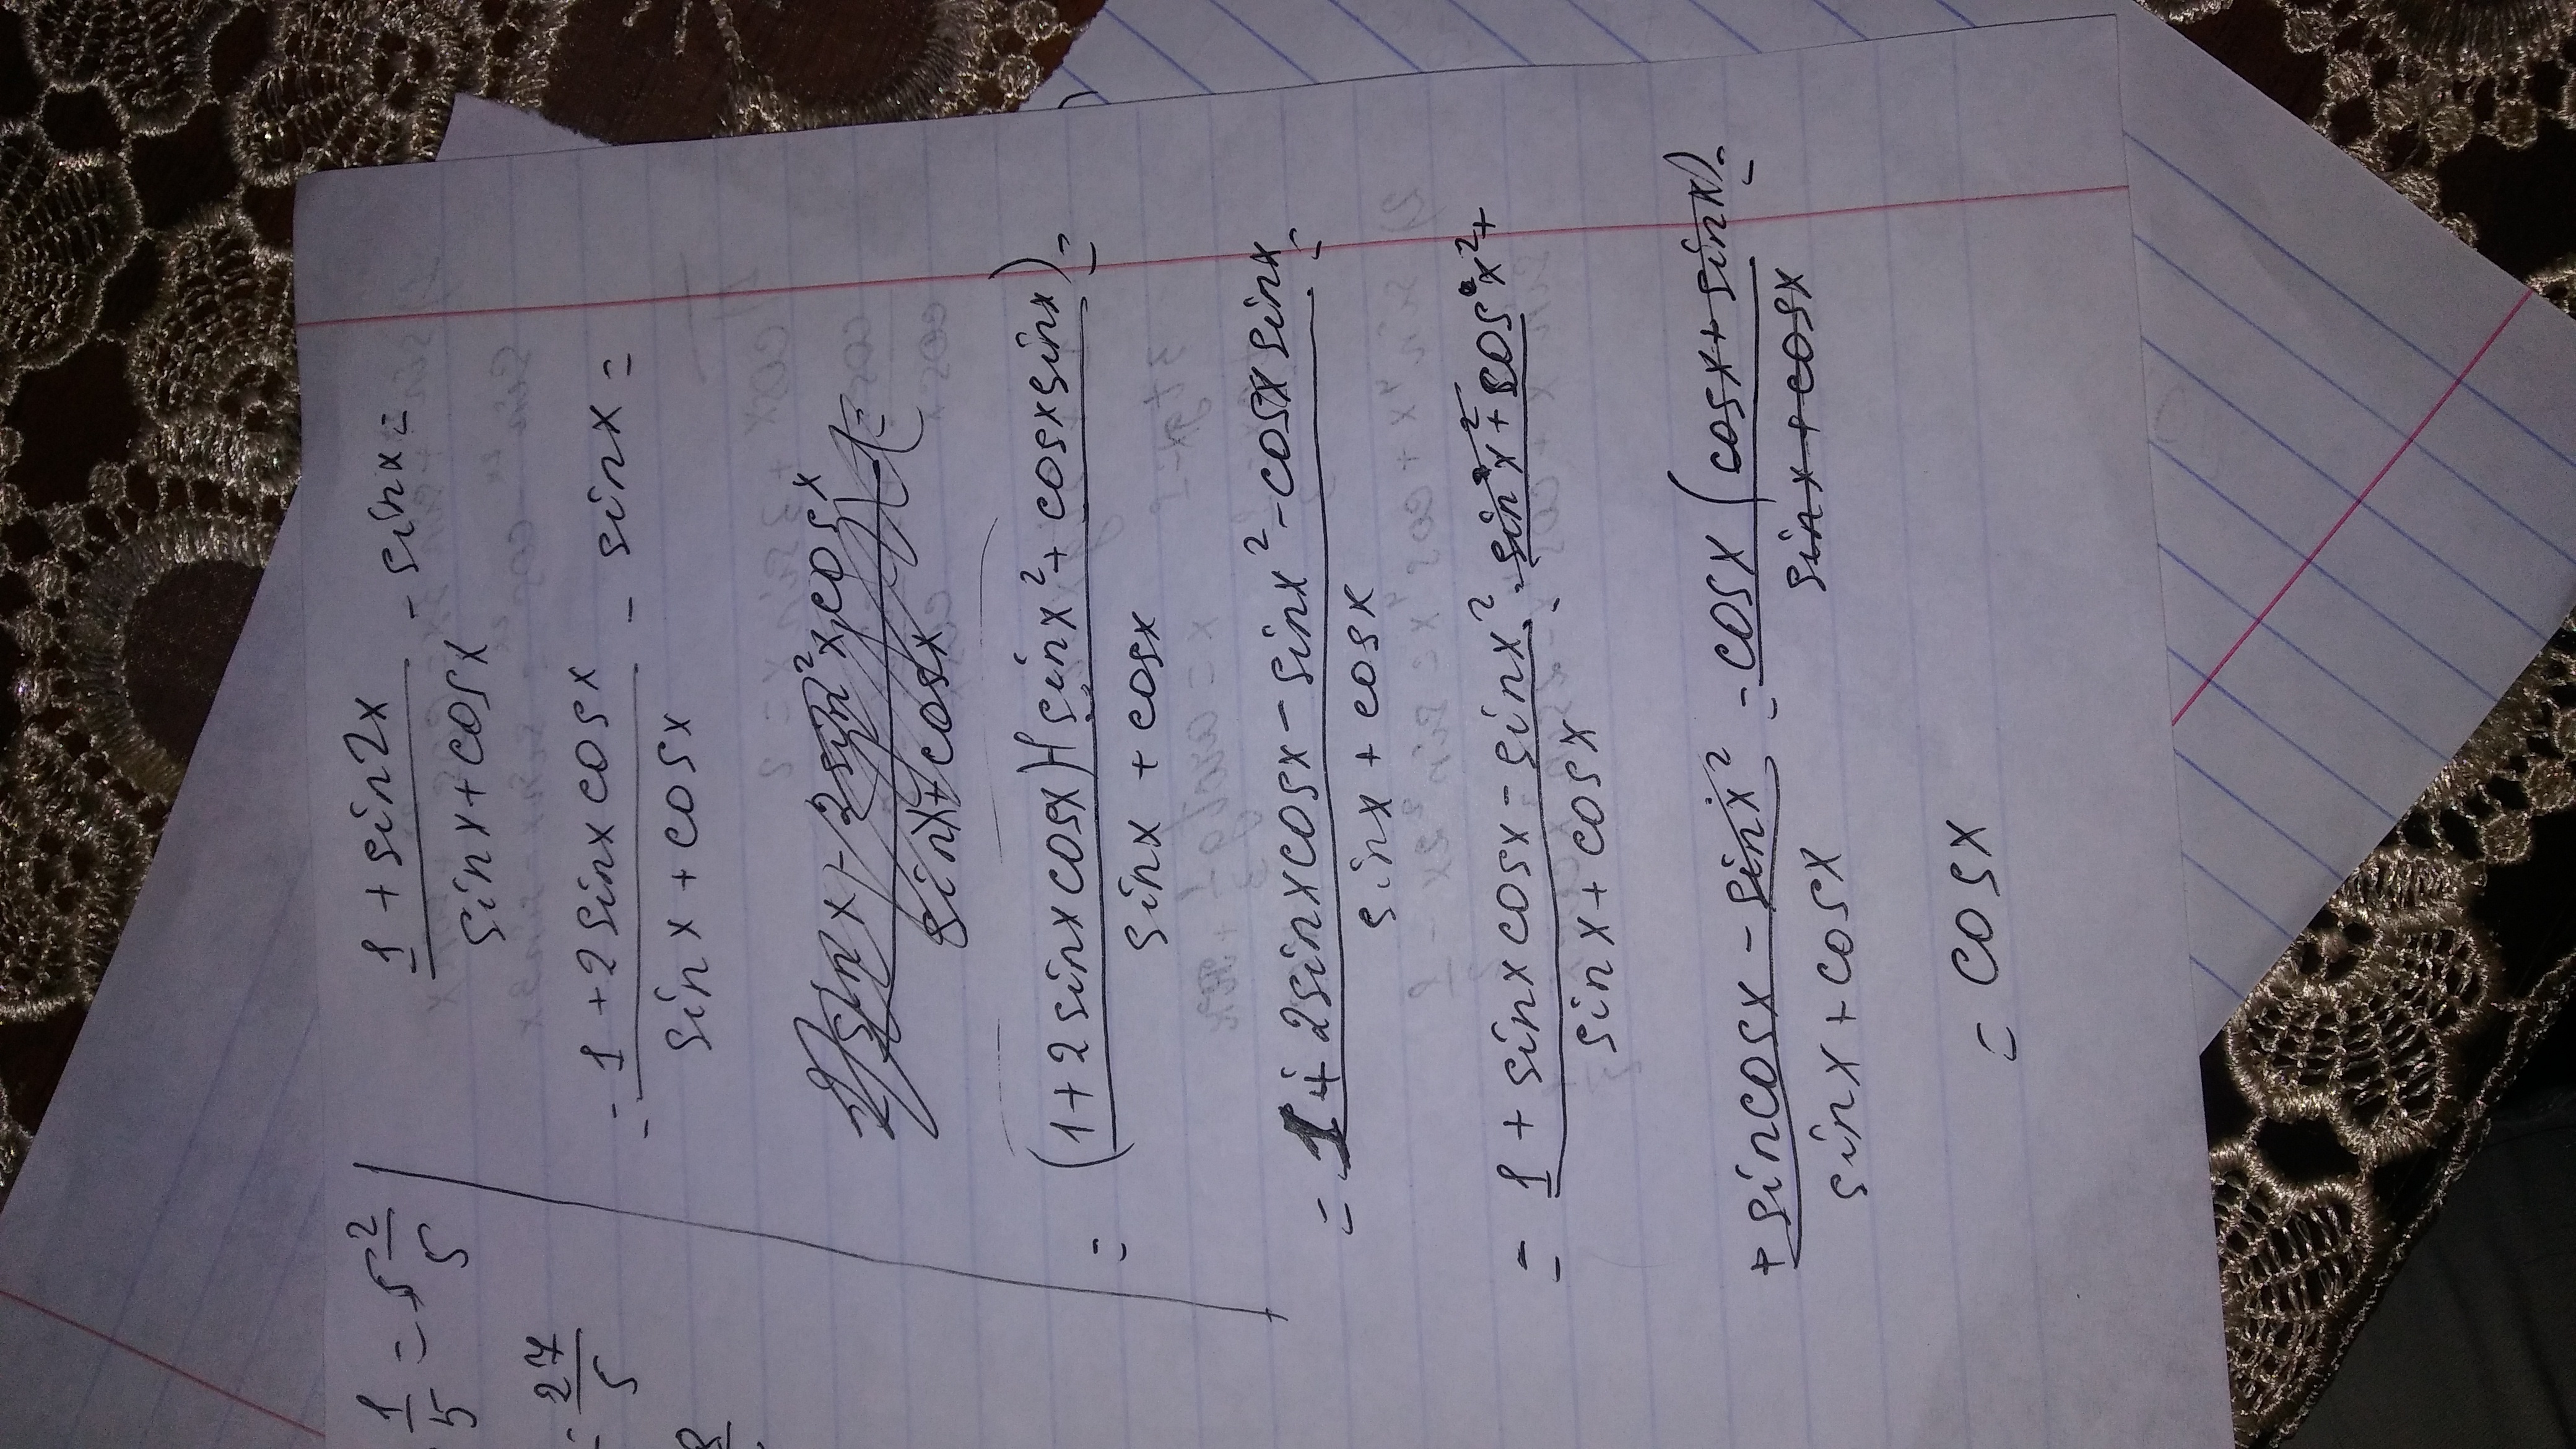 1/5 = 5 2/5
= 27/5
8
(1 + sin2x)/(sinx + cosx) - sinx =
= (1 + 2sinxcosx)/(sinx + cosx) - sinx =
= ((1 + 2sinxcosx) - (sinx² + cosxsinx))/(sinx + cosx) =
= (1 + 2sinxcosx - sinx² - cosxsinx)/(sinx + cosx) =
= (1 + sinxcosx - sinx²)/(sinx + cosx) = sin²x² + cos²x² +
+ (sincosx - sinx²)/(sinx + cosx) = cosx(cosx + sinx)/(sinx + cosx) =
= cosx